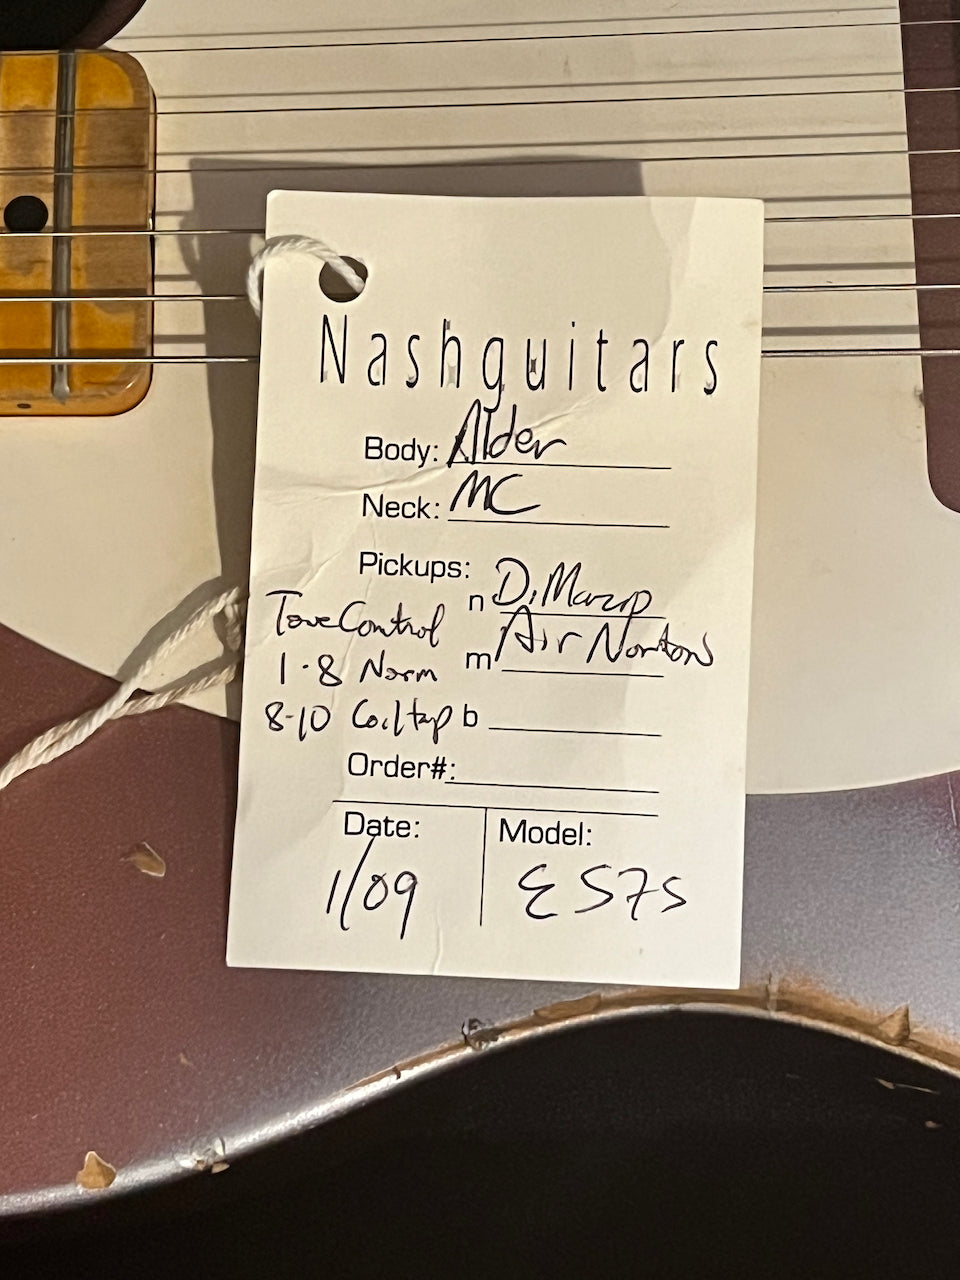 Nashguitars
Body: Alder
Neck: MC
Pickups:
n DiMarzio
m Air Nortons
Tone Control
1-8 Norm
8-10 Coil tap b
Order#:
Date: Model:
1/09 E57S